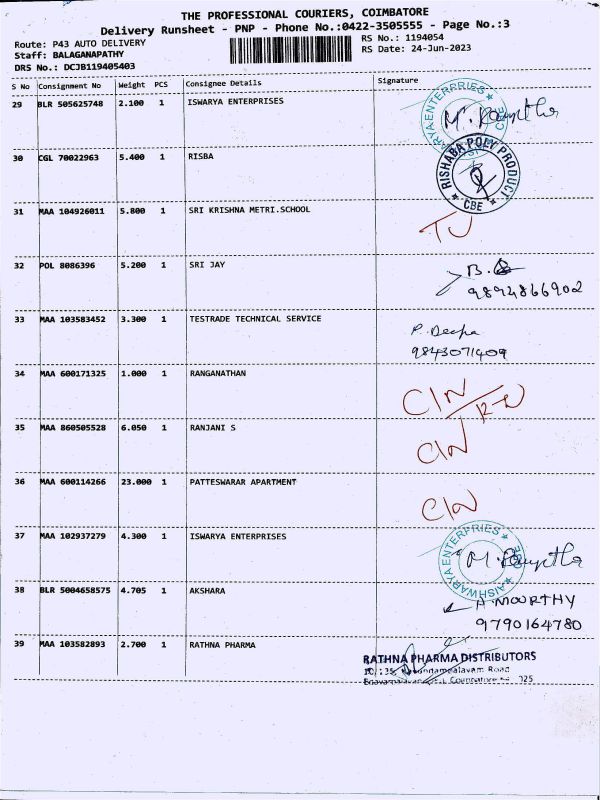 THE PROFESSIONAL COURIERS, COIMBATORE
Delivery Runsheet - PNP - Phone No.:0422-3505555 - Page No.:3
Route: P43 AUTO DELIVERY
RS No.: 1194054
Staff: BALAGANAPATHY
RS Date: 24-Jun-2023
DRS No.: DCJB119405403
S No Consignment No Weight PCS Consignee Details Signature
29 BLR 505625748 2.100 1 ISWARYA ENTERPRISES
30 CGL 70022963 5.400 1 RISBA
RISHABA POLY PRODUCT
CBE
31 MAA 104926011 5.800 1 SRI KRISHNA METRI.SCHOOL
TJ
32 POL 8086396 5.200 1 SRI JAY
9894866902
33 MAA 103583452 3.300 1 TESTRADE TECHNICAL SERVICE
P. Deepa
9843071409
34 MAA 600171325 1.000 1 RANGANATHAN
C/N
35 MAA 860505528 6.050 1 RANJANI S
C/N
36 MAA 600114266 23.000 1 PATTESWARAR APARTMENT
C/N
37 MAA 102937279 4.300 1 ISWARYA ENTERPRISES
AISHWARYA ENTERPRIES
CBE
38 BLR 5004658575 4.705 1 AKSHARA
A. MOORTHY
9790164780
39 MAA 103582893 2.700 1 RATHNA PHARMA
RATHNA PHARMA DISTRIBUTORS
Road